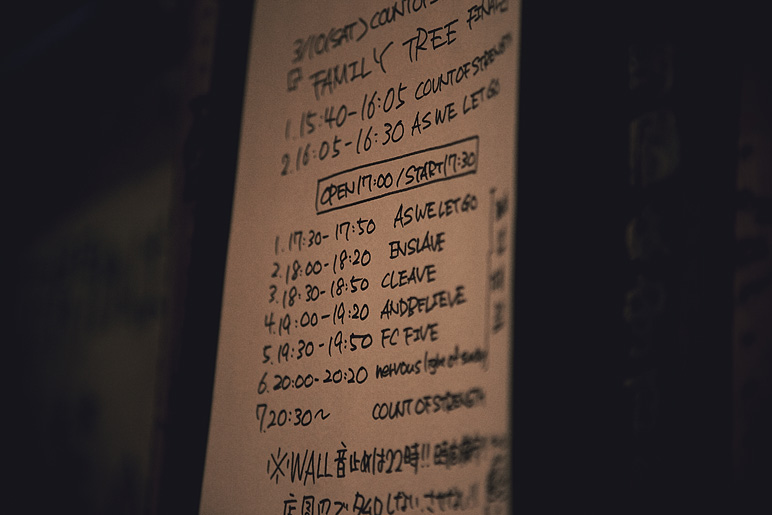 3/10(SAT) COUNT OF
FAMILY TREE FINAL
1. 15:40-16:05 COUNT OF STRENGTH
2. 16:05-16:30 AS WE LET GO
OPEN 17:00 / START 17:30
1. 17:30-17:50 AS WE LET GO
2. 18:00-18:20 ENSLAVE
3. 18:30-18:50 CLEAVE
4. 19:00-19:20 ANDBELIEVE
5. 19:30-19:50 FC FIVE
6. 20:00-20:20 nervous light of sunday
7. 20:30~ COUNT OF STRENGTH
※WALL音止めは22時!!